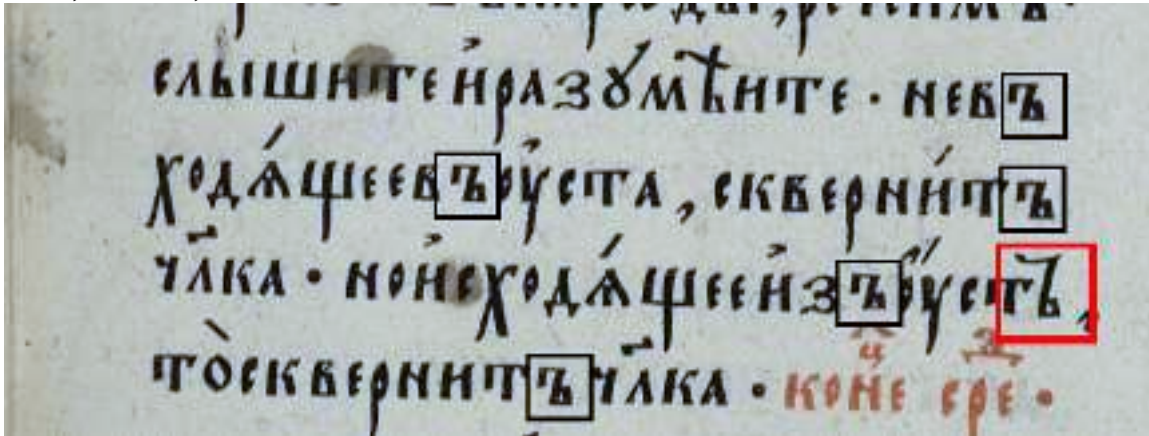 слышите и҆разꙋмѣите · невъ
ходѧ́щеевъѹ҆ста , сквернѝтъ
чл҃ка · нои҆сходѧ́щееи҆зъѹ҆́стъ ,
то̀сквернитъчл҃ка · коне҆ сре ·